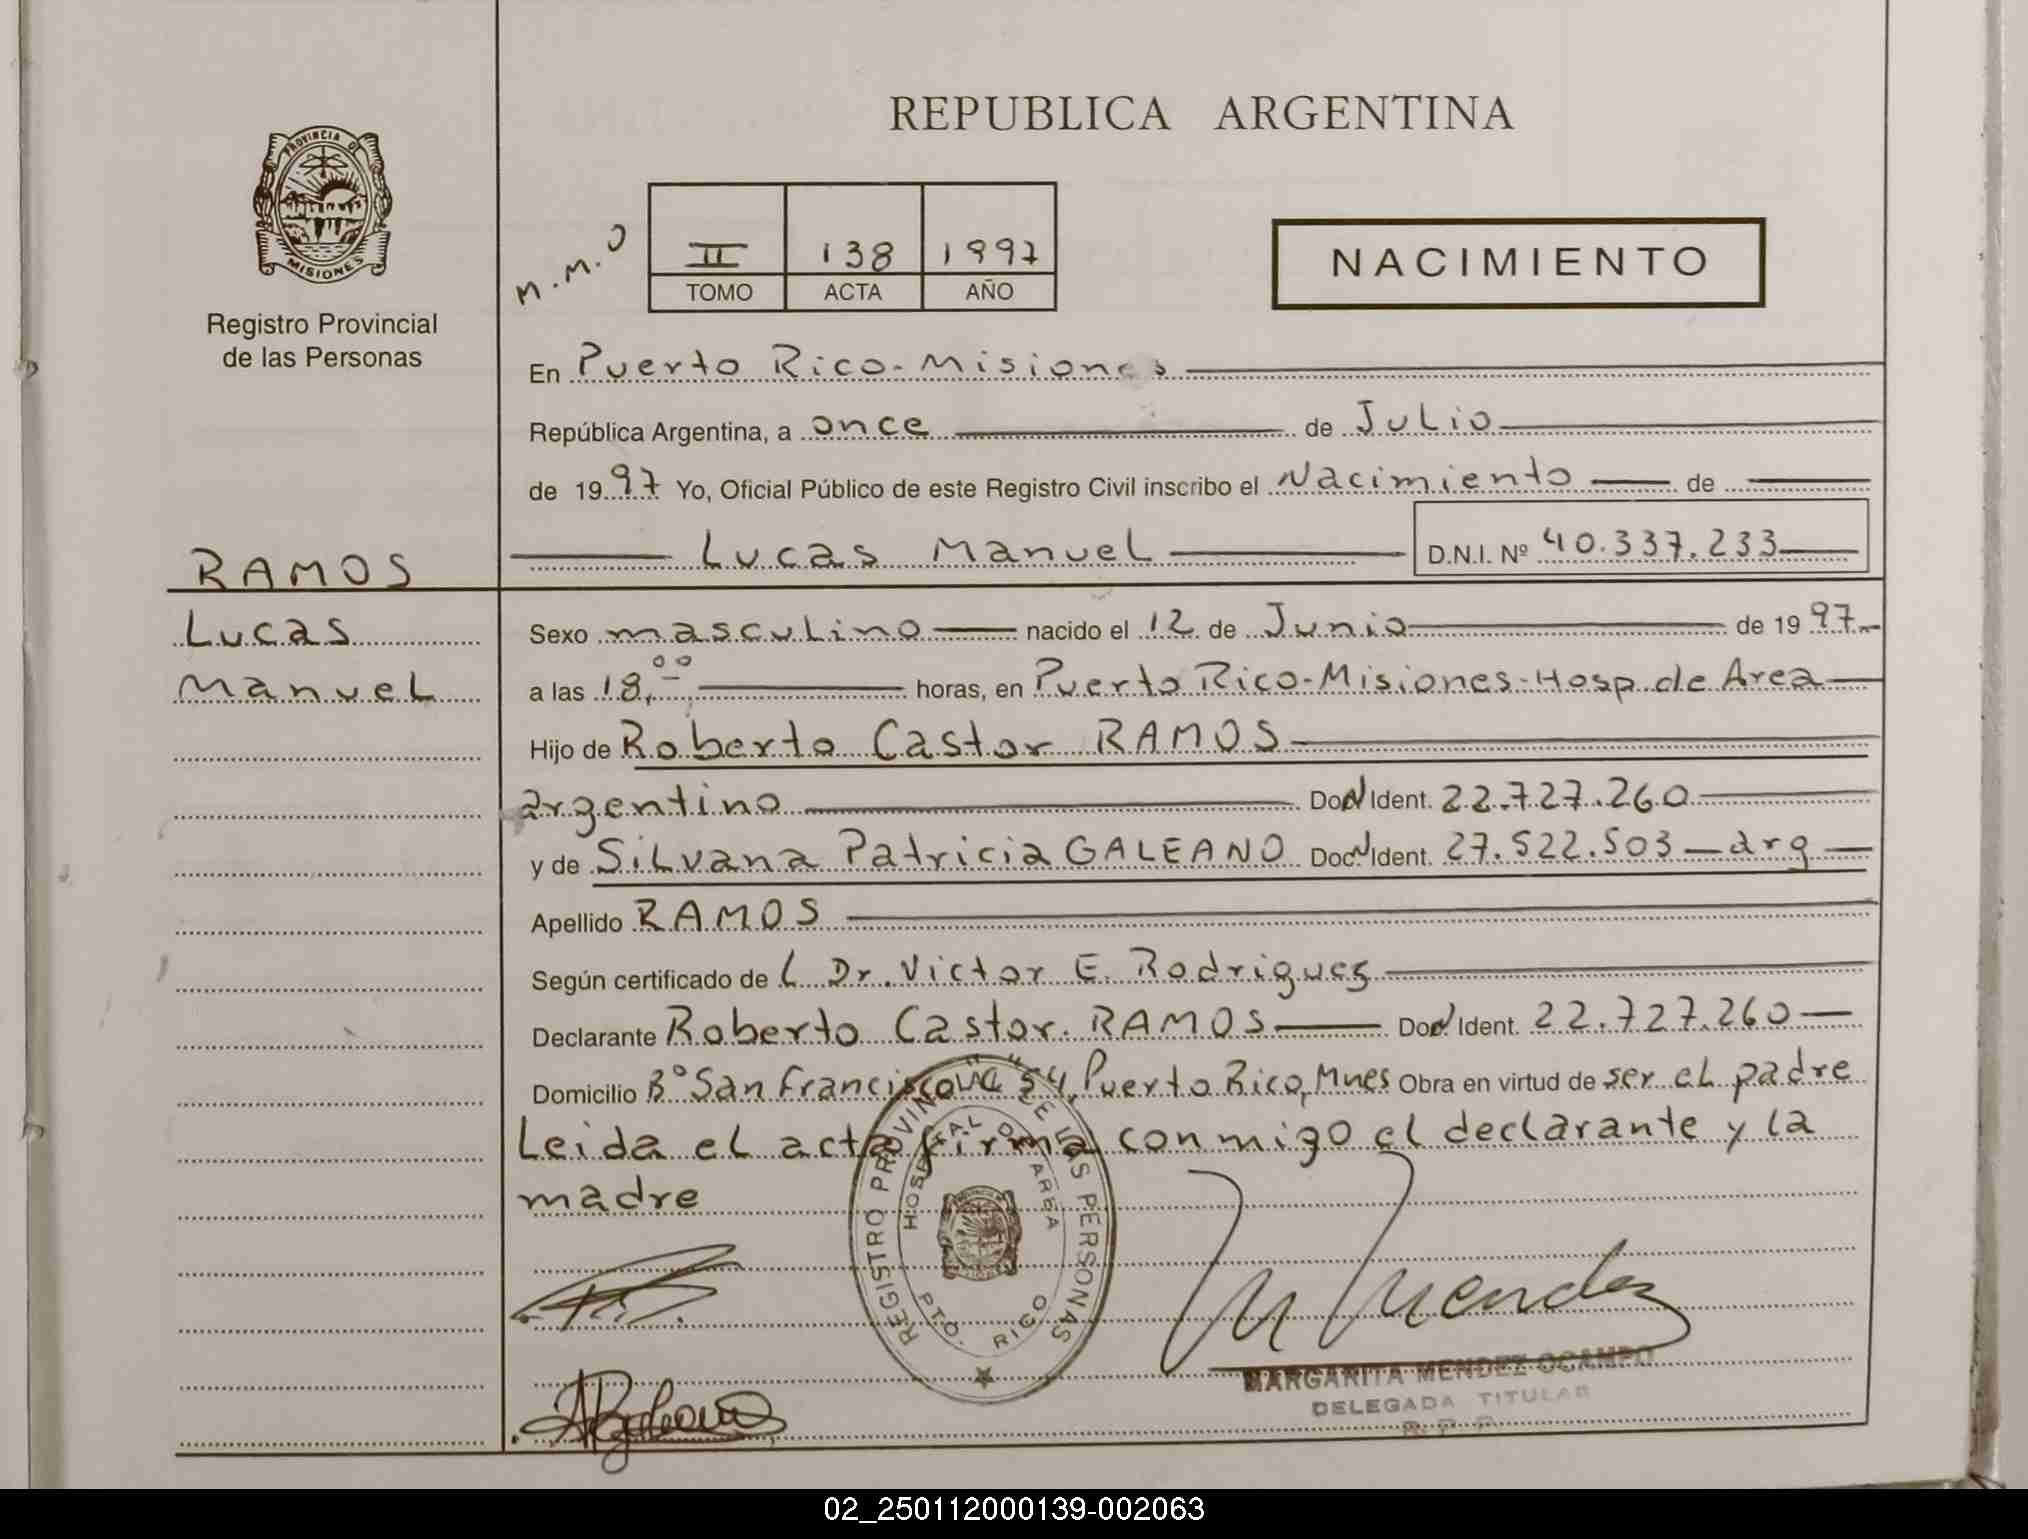 REPUBLICA ARGENTINA
PROVINCIA DE
MISIONES
Registro Provincial
de las Personas
M.M.O
II 138 1997
TOMO ACTA AÑO
NACIMIENTO
En Puerto Rico - Misiones
República Argentina, a once de Julio
de 1997 Yo, Oficial Público de este Registro Civil inscribo el Nacimiento de
Lucas Manuel D.N.I. Nº 40.337.233
RAMOS
Lucas
Manuel
Sexo masculino nacido el 12 de Junio de 1997
a las 18,00 horas, en Puerto Rico - Misiones - Hosp. de Area
Hijo de Roberto Castor RAMOS
argentino Doc. Ident. 22.727.260
y de Silvana Patricia GALEANO Doc. Ident. 27.522.503 - arg
Apellido RAMOS
Según certificado de L Dr. Victor E. Rodriguez
Declarante Roberto Castor RAMOS Doc. Ident. 22.727.260
Domicilio Bº San Francisco "C" 54, Puerto Rico, Mnes Obra en virtud de ser el padre
Leida el acta firma conmigo el declarante y la
madre
REGISTRO PROVINCIAL DE LAS PERSONAS
HOSPITAL DE AREA
PTO. RICO
M Mendez
MARGARITA MENDEZ OCAMPO
DELEGADA TITULAR
R. P. P.
02_250112000139-002063